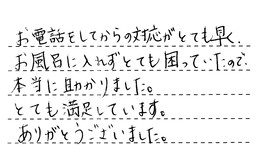 お電話をしてからの対応がとても早く、
お風呂に入れずとても困っていたので、
本当に助かりました。
とても満足しています。
ありがとうございました。